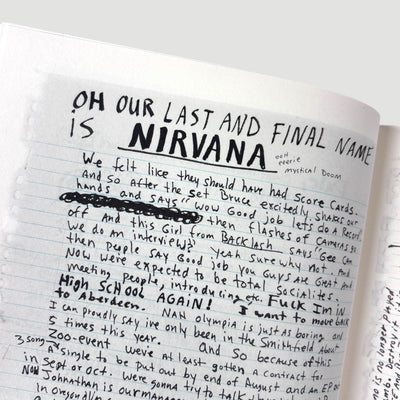 OH OUR LAST AND FINAL NAME
is NIRVANA ooh eerie mystical Doom
We felt like they should have had Score Cards.
And so After the set Bruce excitedly shakes our
hands and says "wow Good Job lets do A Record
then flashes of Cameras go
off And this Girl from BACKLASH says "Gee Can
we do an interview? yeah sure why not. And
then people say Good job you Guys are Great And
Now were expected to be total Socialites.
meeting people, introducing etc. Fuck Im IN
HIGH SCHOOL AGAIN! I want to move back
to Aberdeen. NAH Olympia is just as boring and
I can proudly say ive only been in the Smithfield About
5 times this year. And So because of this
Zoo-event weve at least gotten a contract for
3 song A single to be put out by end of August and an EP out
in Sept or Oct. Were gonna try to talk
Now Johnathan is our manager
in oregon